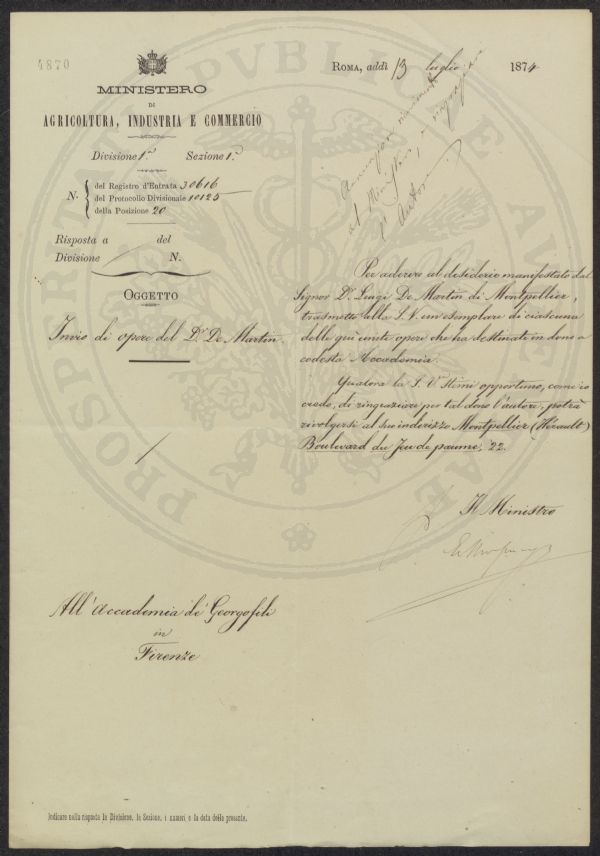 4870
ROMA, addì 13 luglio 1874
MINISTERO
DI
AGRICOLTURA, INDUSTRIA E COMMERCIO
Divisione 1ª Sezione 1ª
N. del Registro d'Entrata 30616
del Protocollo Divisionale 10125
della Posizione 20
Risposta a del
Divisione N.
OGGETTO
Invio di opere del Dr. De Martin.
al Ministero, e
l'Autore
Per aderire al desiderio manifestato dal
Signor Dr. Luigi De Martin di Montpellier,
trasmetto alla S.V. un esemplare di ciascuna
delle quì unite opere che ha destinate in dono a
codesta Accademia.
Qualora la S.V. stimi opportuno, come io
credo, di ringraziare per tal dono l'autore, potrà
rivolgersi al suo indirizzo Montpellier (Hérault)
Boulevard du Jeu de paume, 22.
Il Ministro
All'Accademia dè Georgofili
in
Firenze
Indicare nella risposta la Divisione, la Sezione, i numeri e la data della presente.
PROPRIETATI PVBLICAE